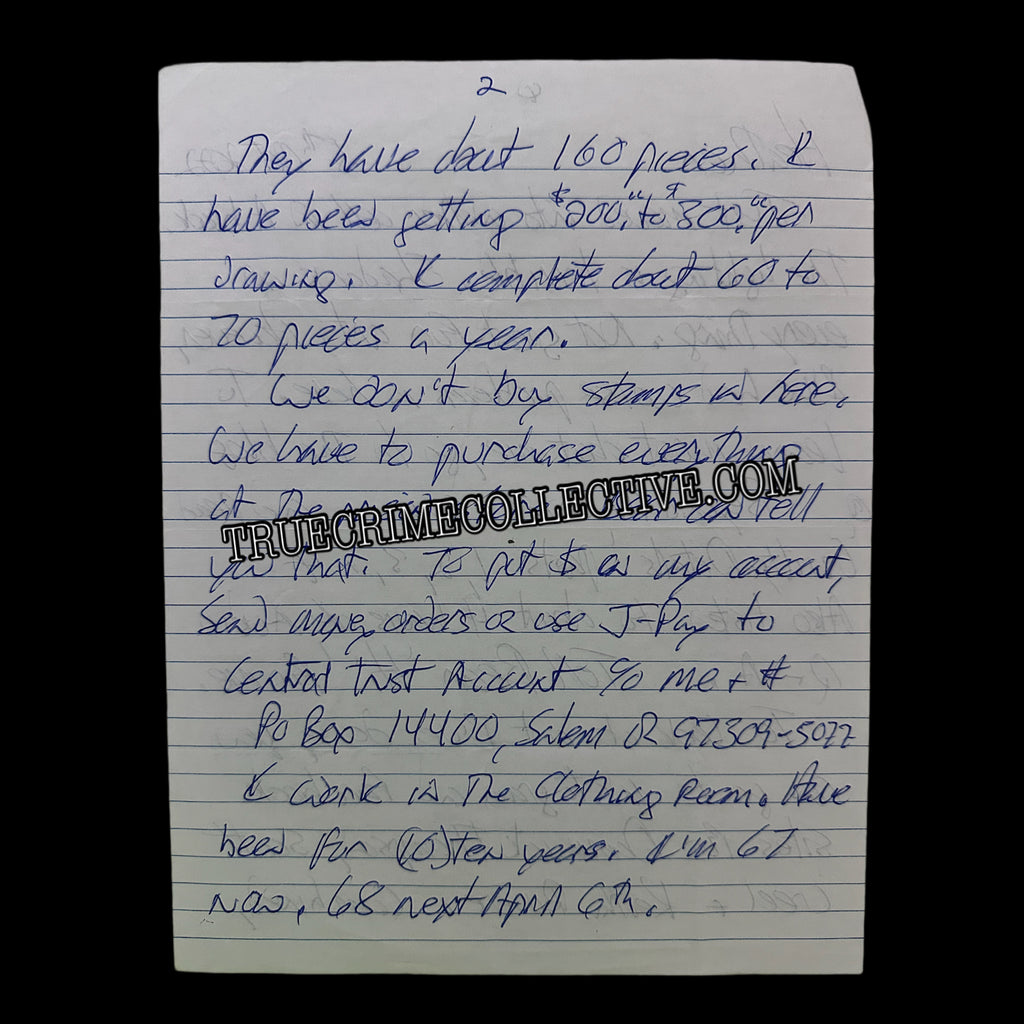 2
They have about 160 pieces. I
have been getting $200.00 to $300.00 per
drawing. I complete about 60 to
70 pieces a year.
We don't buy stamps in here.
We have to purchase everything
at The
TRUECRIMECOLLECTIVE.COM
can tell
you that. To put $ on my account,
Send money orders or use J-Pay to
Central Trust Account c/o me + #
Po Box 14400, Salem OR 97309-5077
I work in The Clothing Room. Have
been for (10) ten years. I'm 67
now, 68 next April 6th.